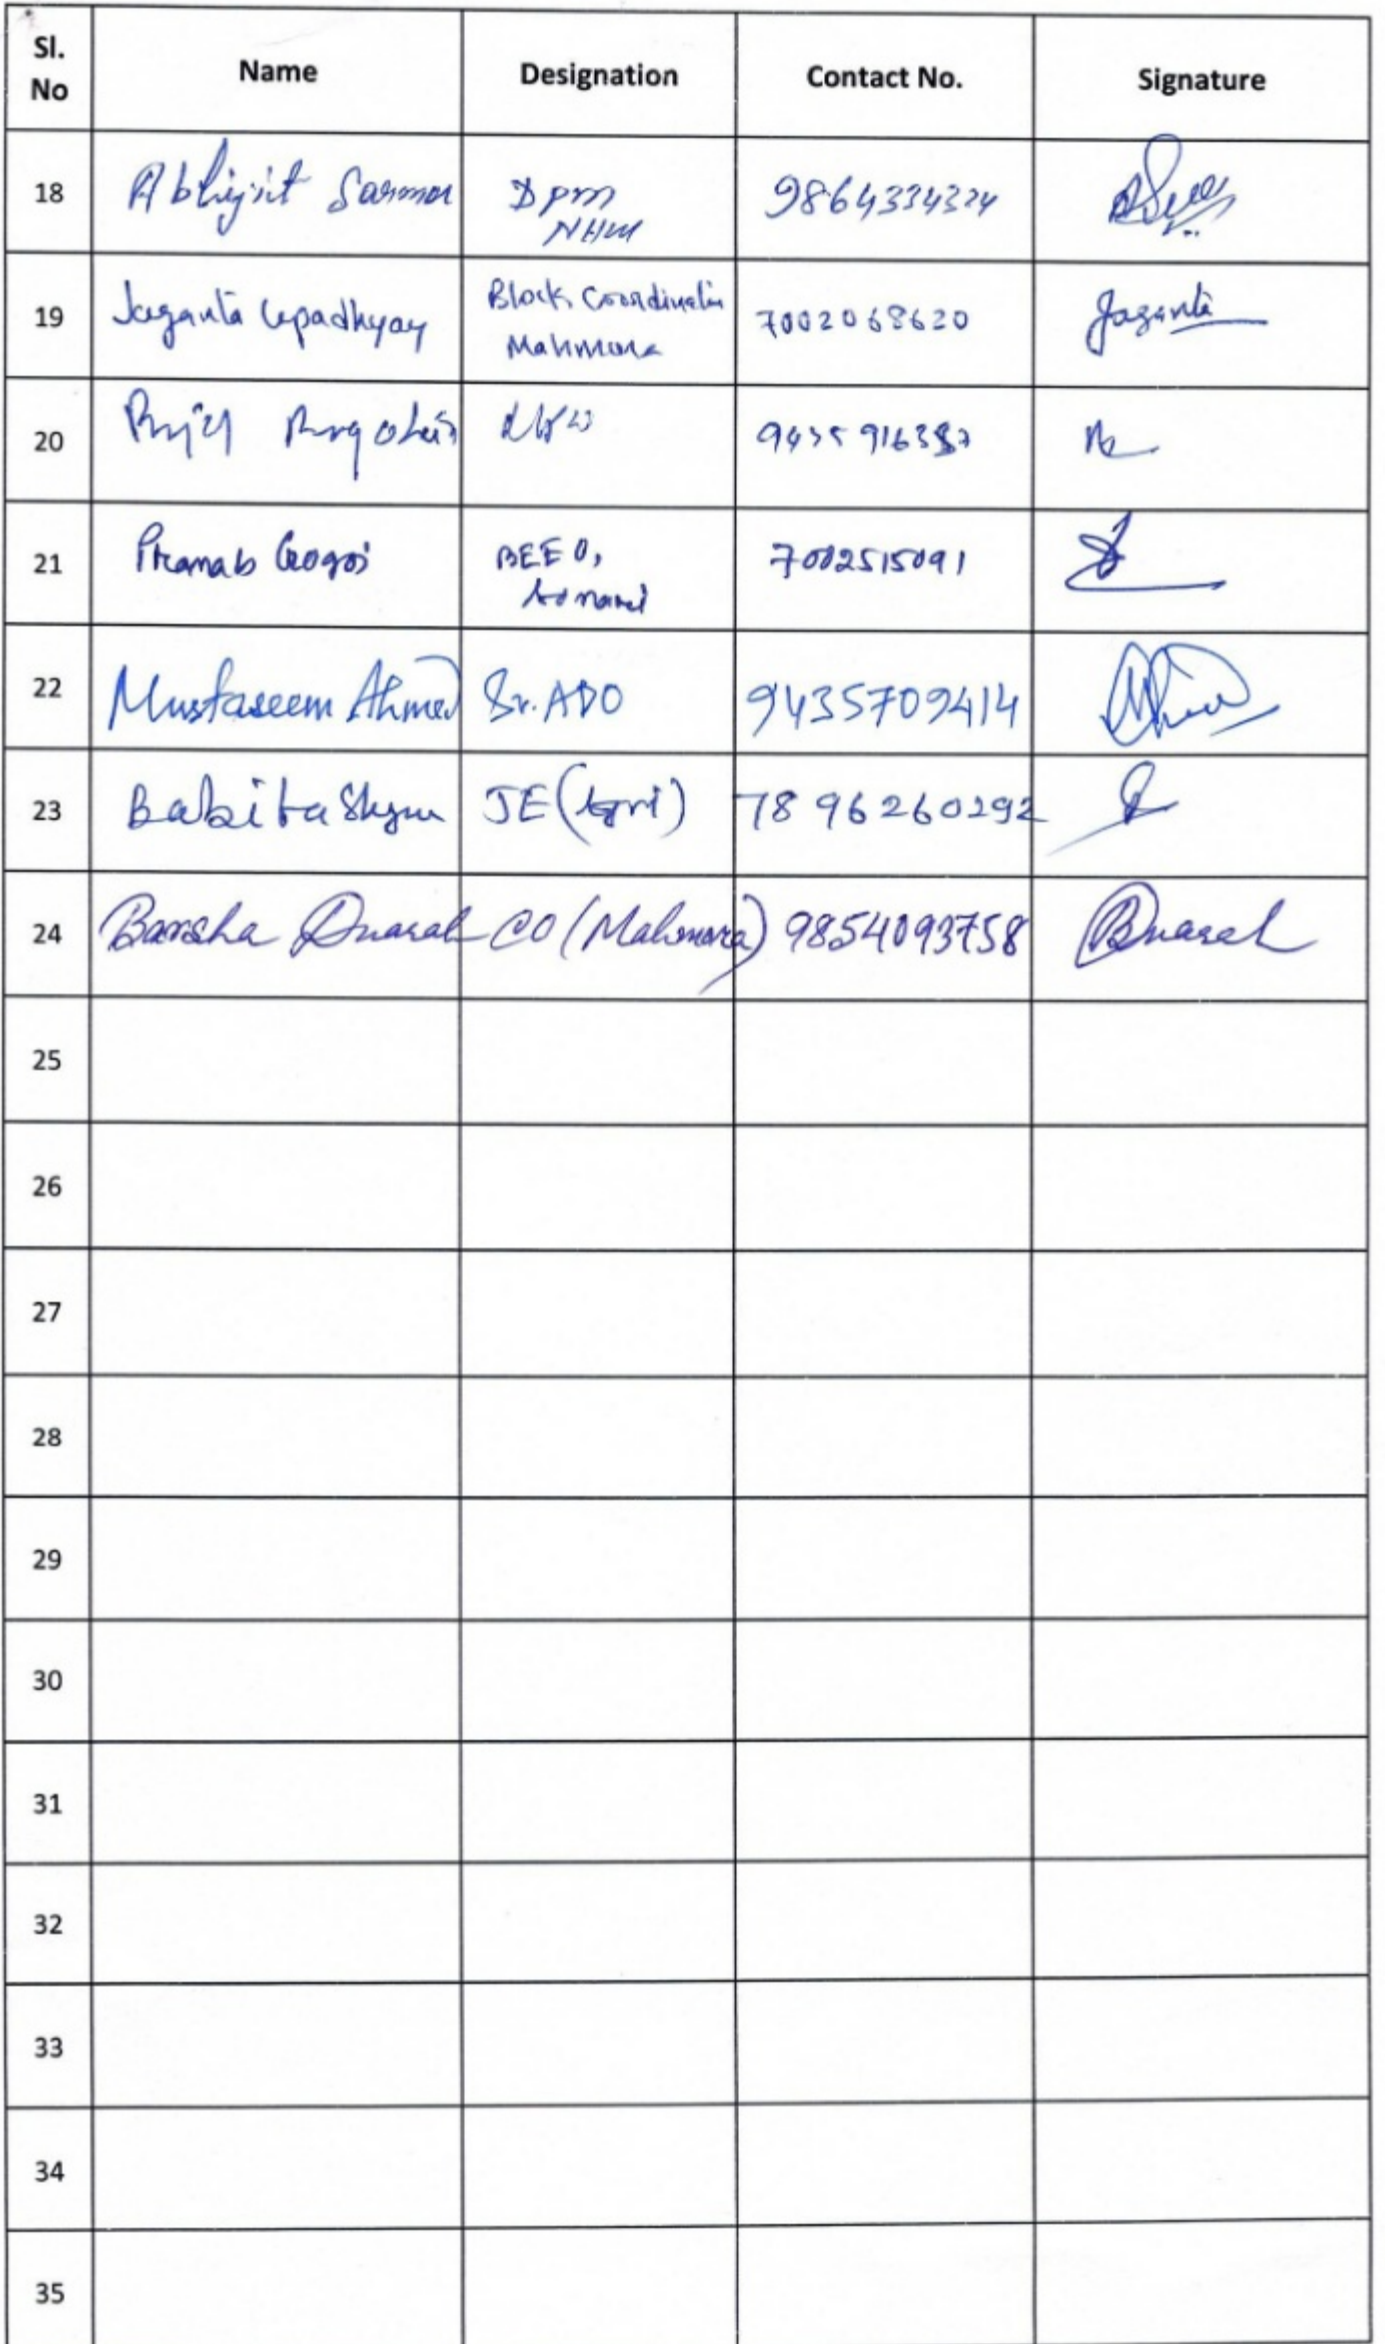 Sl. No Name Designation Contact No. Signature
18 Abhijit Sarma DPM 9864334324
NHM
19 Jayanta Upadhyay Block Coordinator 7002068620 Jayanta
Mahmora
20 Borgohain
21 Pranab Gogoi BEEO, 7002515091
22 Mustaseem Ahmed Sr. ADO 9435709414
23 Babita JE (Agri) 7896260292
24 Barsha Duarah CO (Mahmora) 9854093758 BDuarah
25
26
27
28
29
30
31
32
33
34
35